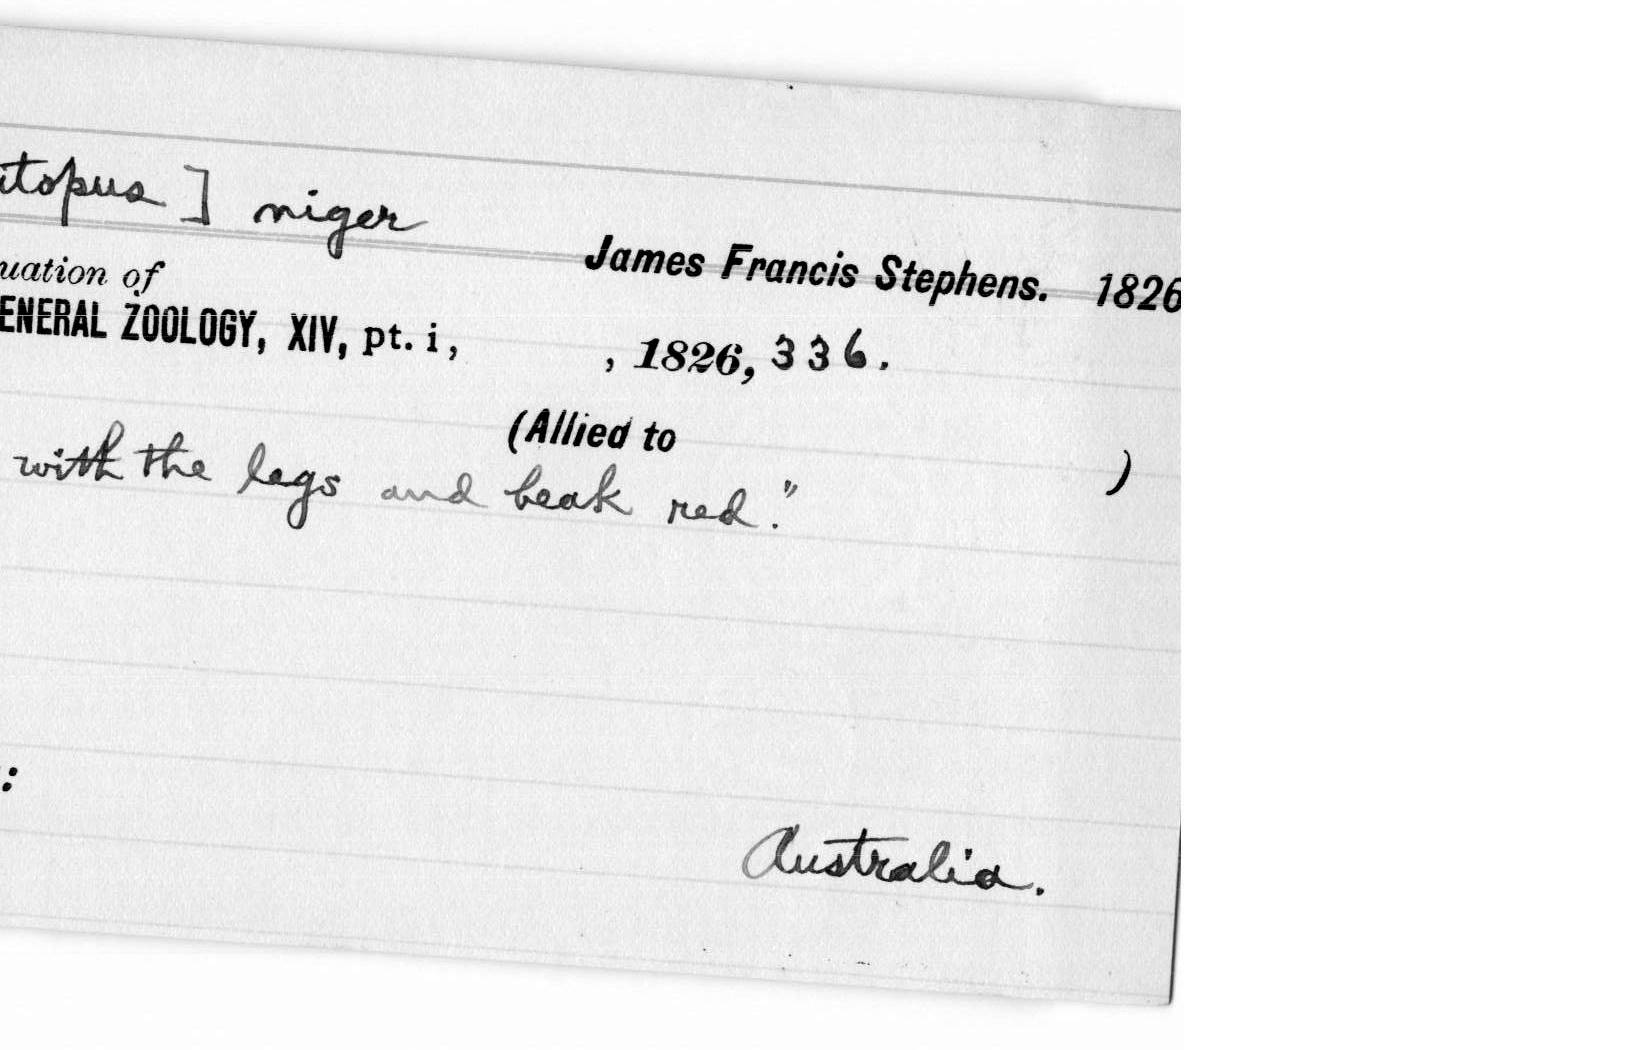 itopus] niger
James Francis Stephens. 1826
uation of
ENERAL ZOOLOGY, XIV, pt. i, , 1826, 336.
(Allied to )
with the legs and beak red."
:
Australia.